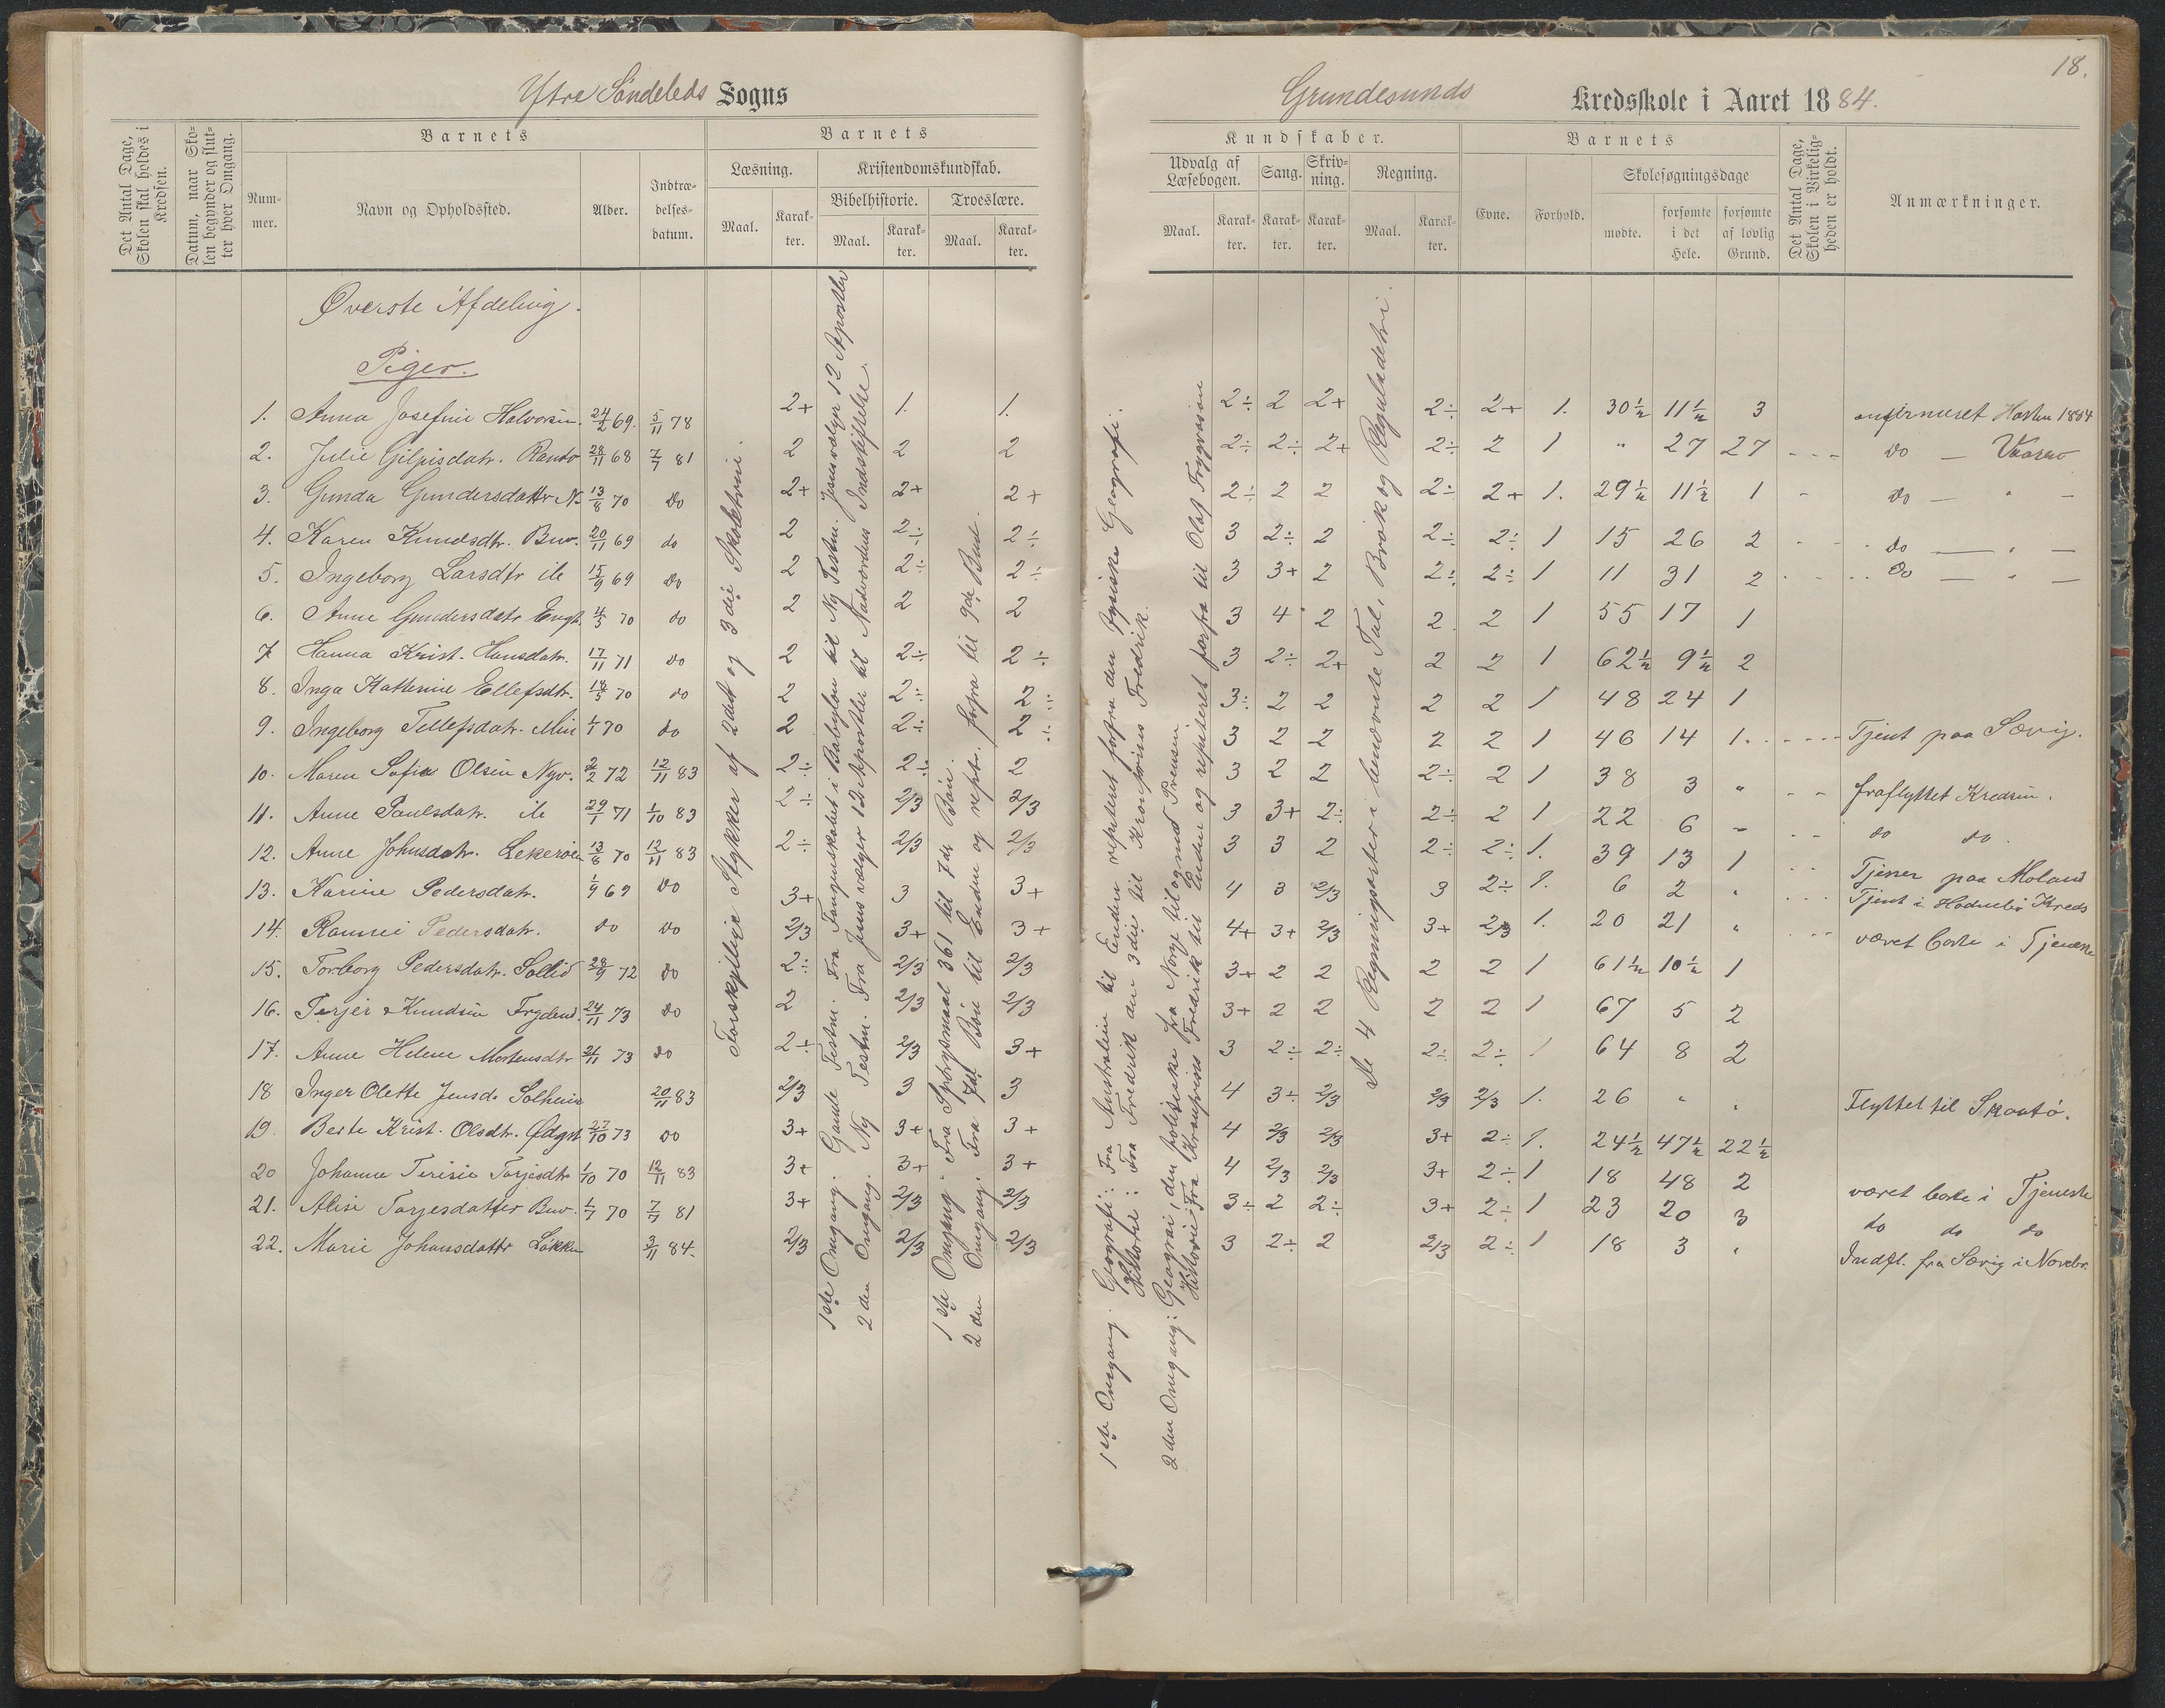 Ytre Söndeleds Sogns
Det Antal Dage, Skolen skal holdes i Kredsen.
Datum, naar Skolen begynder og slutter hver Omgang.
Barnets
Nummer.
Navn og Opholdssted.
Alder.
Indtrædelsesdatum.
Barnets
Læsning.
Kristendomskundskab.
Bibelhistorie. Troeslære.
Maal. Karakter. Maal. Karakter. Maal. Karakter.
Øverste Afdeling.
Piger.
1. Anna Josefine Halvorsen. 24/2 69. 5/11 78 2+ 1. 1.
2. Julie Gilpisdatr. Rantö 28/11 68 7/7 81 2 2 2
3. Gunda Gundersdattr N. 13/8 70 do 2+ 2+ 2+
4. Karen Knudsdtr. Buv. 20/11 69 do 2 2÷ 2÷
5. Ingeborg Larsdtr ile 15/9 69 do 2 2÷ 2÷
6. Anne Gundersdatr Engt. 4/5 70 do 2 2 2
7. Hanna Krist. Hansdatr. 17/11 71 do 2 2÷ 2÷
8. Inga Katherine Ellefsdtr. 18/5 70 do 2 2÷ 2÷
9. Ingeborg Tellefsdatr. Min 1/1 70 do 2 2÷ 2÷
10. Maren Sofie Olsen Nyv. 2/2 72 12/11 83 2÷ 2÷ 2
11. Anne Paulsdatr. ile 29/1 71 1/10 83 2÷ 2/3 2/3
12. Anne Johnsdatr. Lekeröen 13/8 70 12/11 83 2÷ 2/3 2/3
13. Karine Pedersdatr. 1/9 69 do 3+ 3 3+
14. Rannei Pedersdatr. do do 2/3 3+ 3+
15. Torborg Pedersdatr. Sollid 28/9 72 do 2÷ 2/3 2/3
16. Terjer Knudsen Frydend. 24/11 73 do 2 2/3 2/3
17. Anne Helene Mortensdtr 21/11 73 do 2÷ 2/3 3+
18 Inger Olette Jensd. Solheim 20/11 83 2/3 3 3
19. Berte Krist. Olsdtr. Ødgrd 27/10 73 do 3+ 3+ 3+
20 Johanne Terisie Torjesdtr 1/10 70 12/11 83 3+ 3+ 3+
21. Alise Torjesdatter Buv. 1/7 70 7/7 81 3+ 2/3 2/3
22. Marie Johansdattr Løkken 3/11 84. 2/3 2/3 2/3
Forskjellige Stykker af 2det og 3die Skoletrin.
1ste Omgang. Gamle Testm. Fra Fangenskabet i Babylon til Ny Testm. Jesus vælger 12 Apostler
2den Omgang. Ny Testm. Fra Jesus vælger 12 Apostler til Nadverdens Indstiftelse.
1ste Omgang. Fra Spörgsmaal 361 til 7de Bön.
2den Omgang. Fra 7de Bön til Enden og rept. forfra til 9de Bud.
18.
Grundesunds Kredsskole i Aaret 1884.
Kundskaber.
Udvalg af Læsebogen. Sang. Skrivning. Regning.
Maal. Karakter. Karakter. Karakter. Maal. Karakter.
Barnets
Evne. Forhold.
Skolesøgningsdage
mødte. forsømte i det Hele. forsømte af lovlig Grund.
Det Antal Dage, Skolen i Virkeligheden er holdt.
Anmærkninger.
1ste Omgang. Geografi: Fra Australien til Enden repeteret forfra den fysiske Geografi.
Historie: Fra Fredrik den 3die til Kronprins Fredrik.
2den Omgang: Geografi, den politiske fra Norge til og med
Historie: Fra Kronprins Fredrik til Enden og repeteret forfra til Olaf Trygvason
De 4 Regningsarter i benævnte Tal, Brök og Reguladetri.
2÷ 2 2+ 2÷ 2+ 1. 30½ 11½ 3 Hösten 1884
2÷ 2÷ 2+ 2÷ 2 1 " 27 27 do — Vaaren
2÷ 2 2 2÷ 2+ 1. 29½ 11½ 1 do — " —
3 2÷ 2 2÷ 2÷ 1 15 26 2 do — " —
3 3+ 2 2÷ 2÷ 1 11 31 2 do — " —
3 4 2 2 2 1 55 17 1
3 2÷ 2+ 2 2 1 62½ 9½ 2
3÷ 2 2 2 2 1 48 24 1
3 2 2 2 2 1 46 14 1. Tjent paa Sævig.
3 2 2 2÷ 2 1 38 3 " fraflyttet Kredsen.
3 3+ 2÷ 2÷ 2 1 22 6 " do do.
3 3 2 2÷ 2÷ 1. 39 13 1 Tjener paa Moland
4 3 2/3 3 2÷ 1. 6 2 " Tjent i Kreds
4+ 3+ 2/3 3+ 2/3 1. 20 21 " været borte i Tjeneste
3+ 2 2 2 2 1 61½ 10½ 1
3+ 2 2 2 2 1 67 5 2
3 2÷ 2÷ 2÷ 2÷ 1 64 8 2
4 3÷ 2/3 2/3 2/3 1. 26 " " Flyttet til Skaatö.
4 2/3 2/3 3+ 2÷ 1. 24½ 47½ 22½
4 2/3 2/3 3+ 2÷ 1 18 48 2 været borte i Tjeneste
3÷ 2 2÷ 3+ 2÷ 1 23 20 3 do do do
3 2÷ 2 2/3 2÷ 1 18 3 " Indfl. fra Sævig i Novbr.